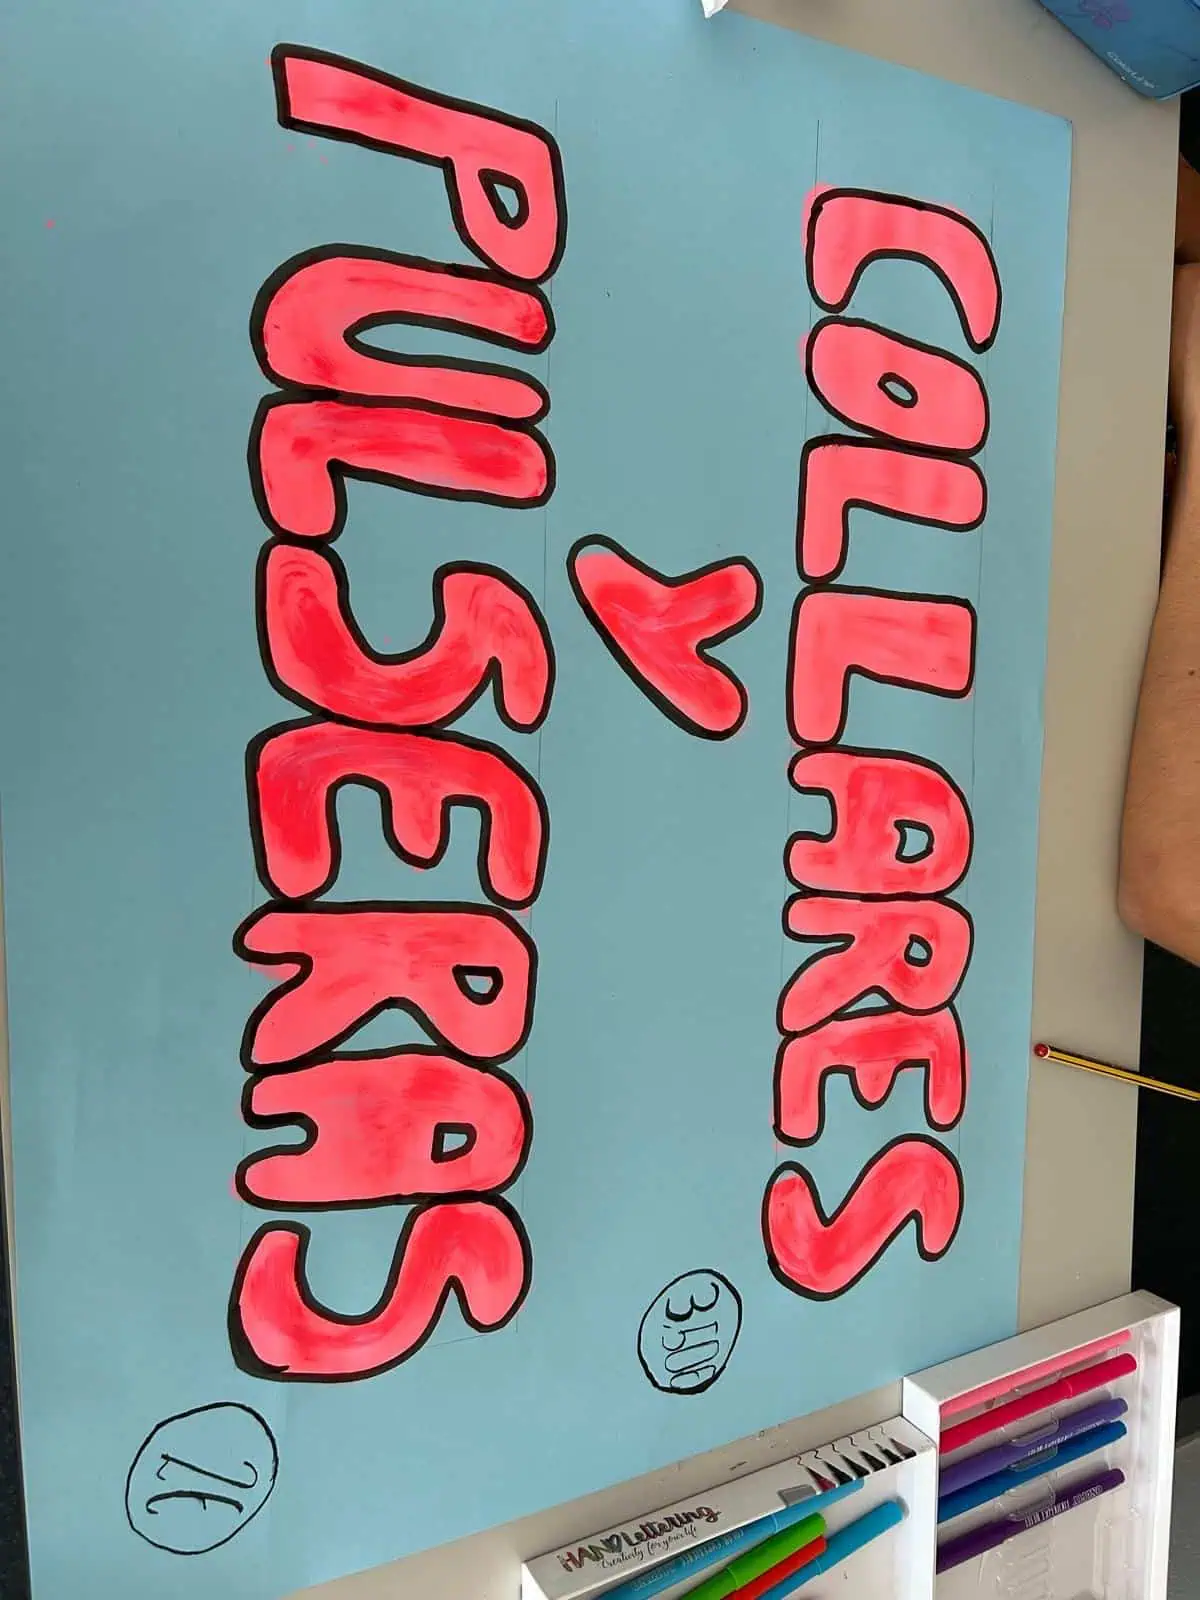 COLLARES
3,50€
Y
PULSERAS
2€
HANDLettering
Creativity for your life